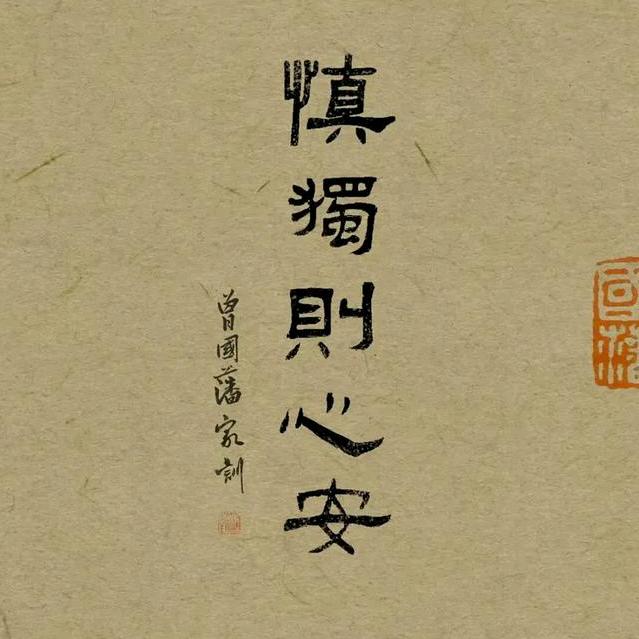 慎獨則心安
曾國藩家訓